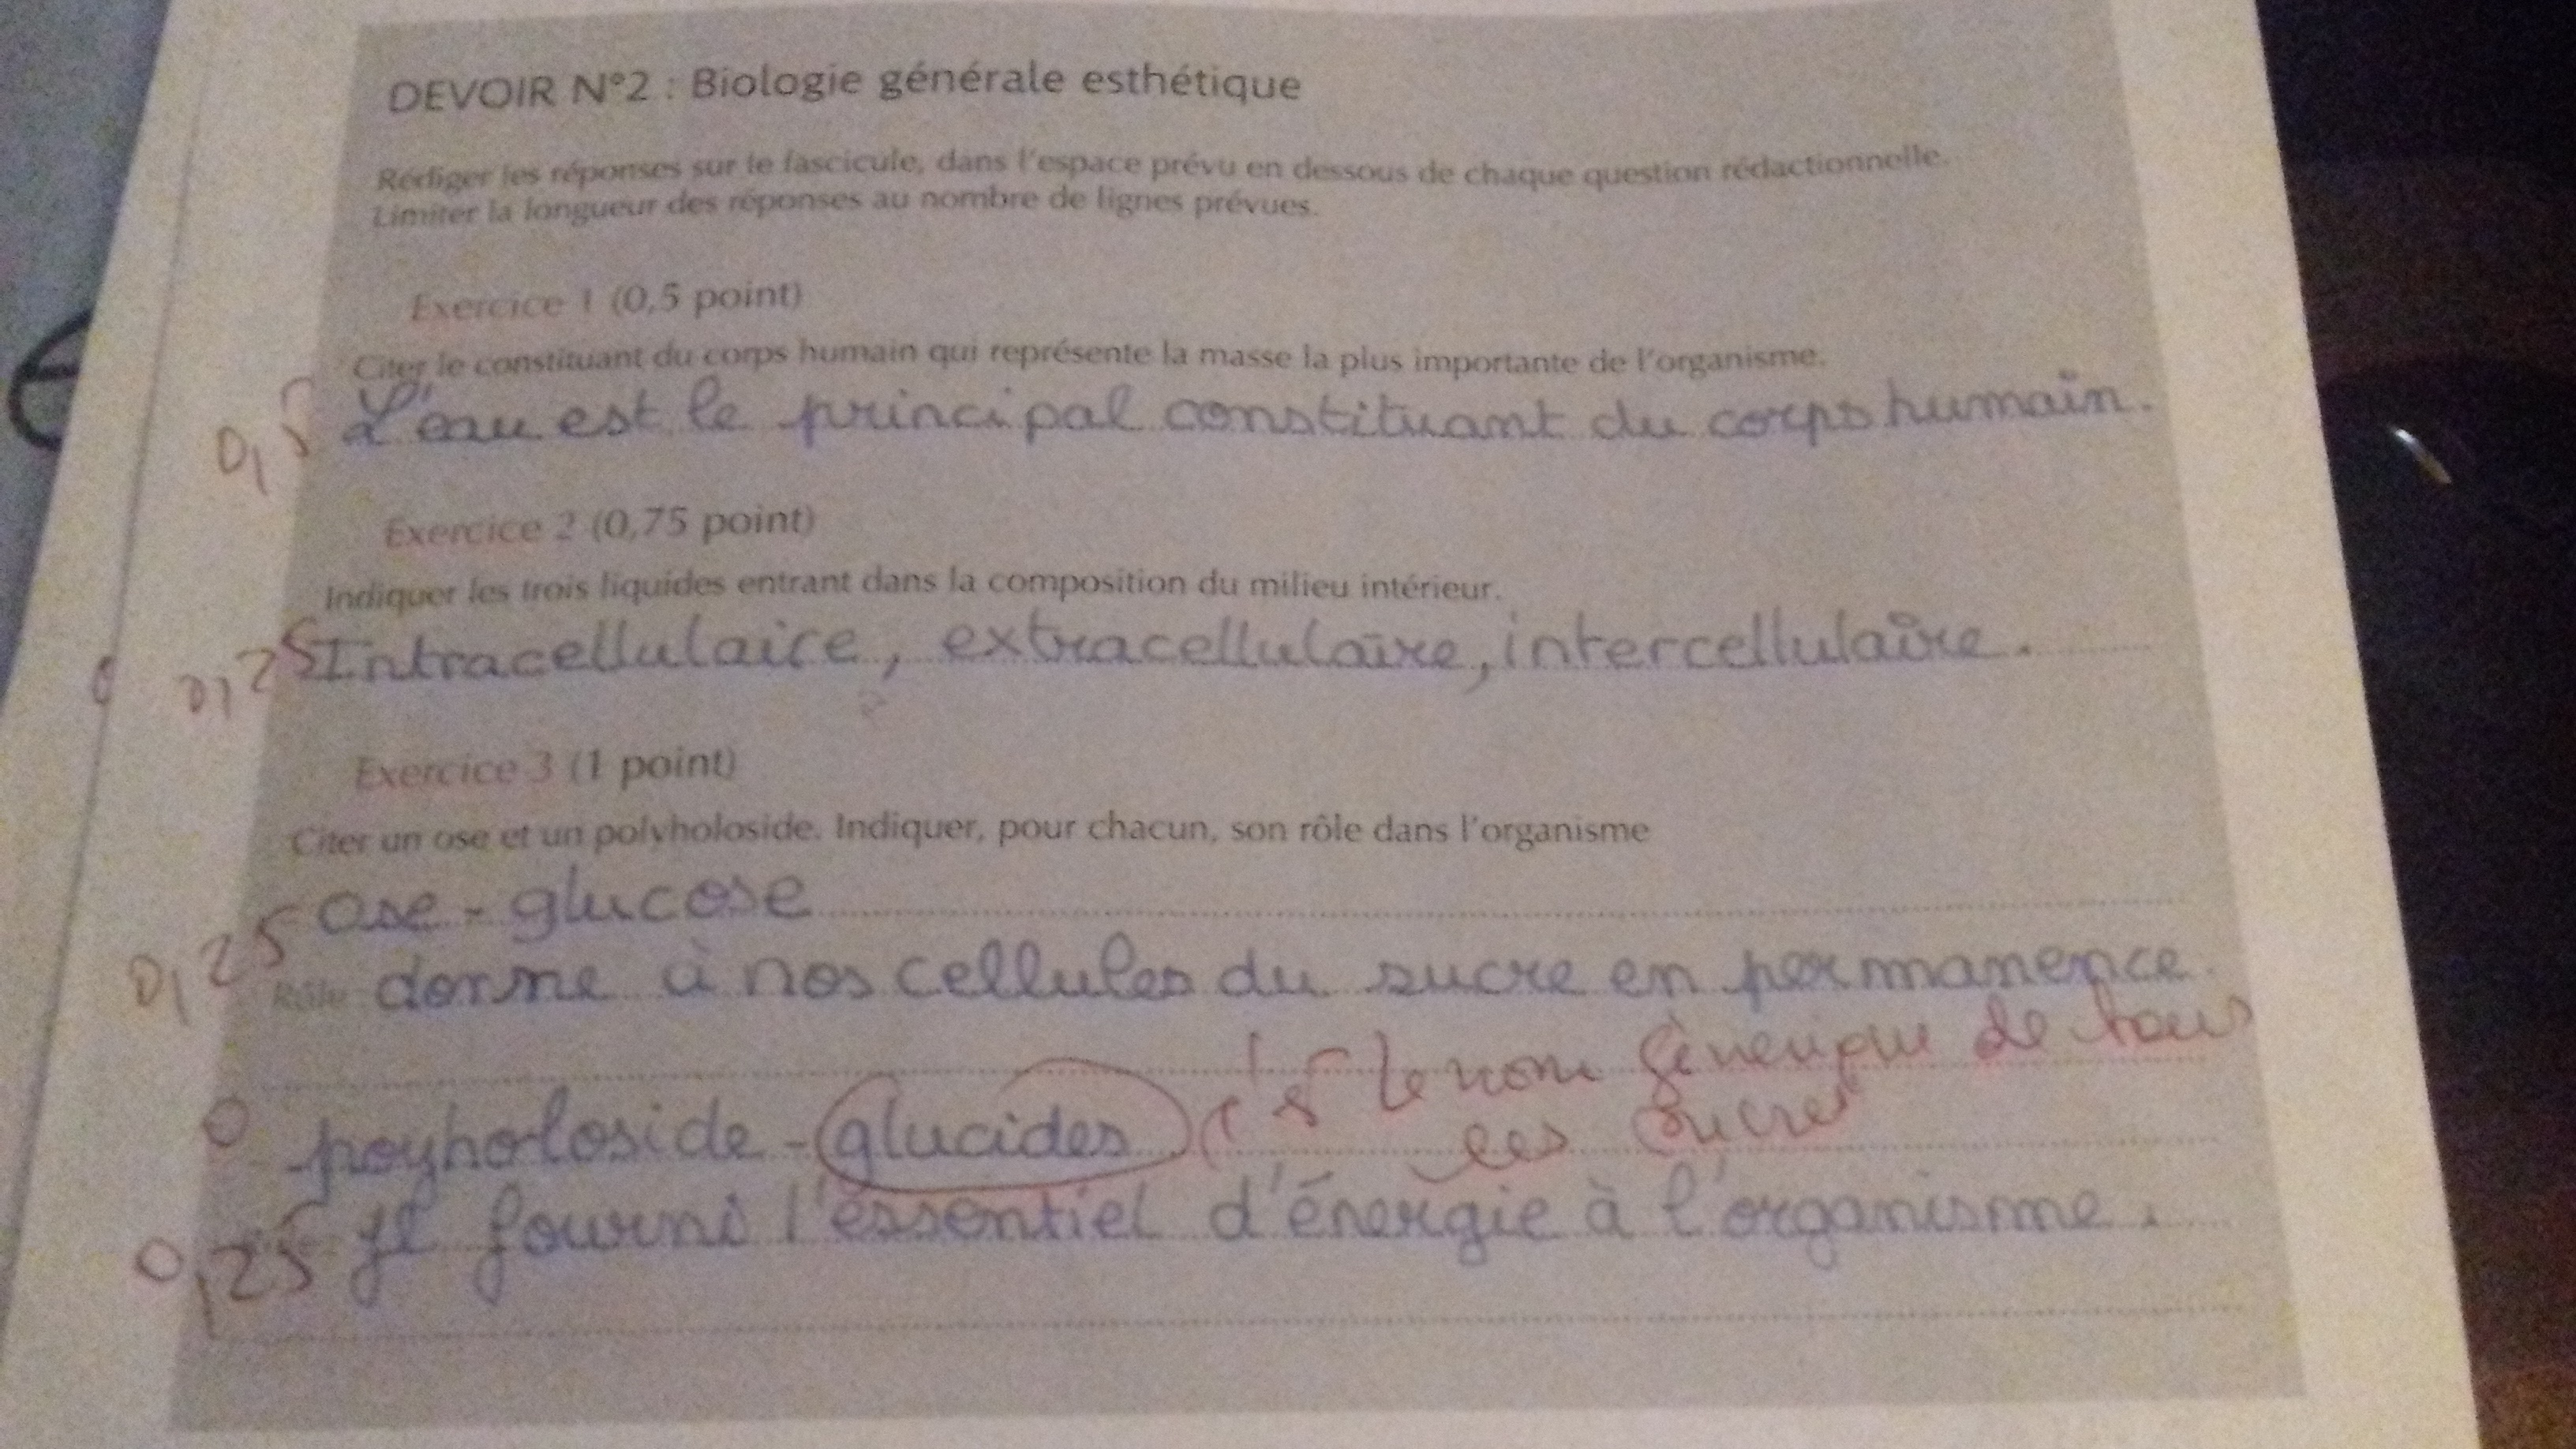 DEVOIR N°2 : Biologie générale esthétique
Rédiger les réponses sur le fascicule, dans l'espace prévu en dessous de chaque question rédactionnelle.
Limiter la longueur des réponses au nombre de lignes prévues.
Exercice 1 (0,5 point)
Citer le constituant du corps humain qui représente la masse la plus importante de l'organisme.
0,5 L'eau est le principal constituant du corps humain.
Exercice 2 (0,75 point)
Indiquer les trois liquides entrant dans la composition du milieu intérieur.
0,25 Intracellulaire, extracellulaire, intercellulaire.
Exercice 3 (1 point)
Citer un ose et un polyholoside. Indiquer, pour chacun, son rôle dans l'organisme
Ose - glucose
0,25 Rôle donne à nos cellules du sucre en permanence.
c'est le nom générique de tous
0 poyholoside - glucides
les sucres
0,25 Il fourni l'éssentiel d'énergie à l'organisme.